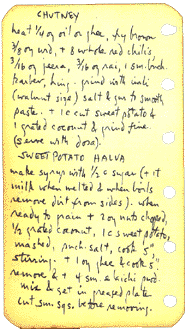 CHUTNEY
heat 1/4 oz oil or ghee, fry brown
3/8 oz urd, + 8 whole red chilis
3/16 oz jeera, 3/16 oz rai, 1 sm. birch.
hing. grind with imli
(walnut size) salt & gur to smooth
paste. + 1c cut sweet potato &
1 grated coconut & grind fine.
(serve with dosa).
SWEET POTATO HALVA
make syrup with 1/2 c sugar (+ 1t
milk when melted & when boils
remove dirt from sides). when
ready to grain + 1 oz nuts chopped,
1/2 grated coconut, 1c sweet potato,
mashed, pinch salt, cook 5"
stirring. + 1 oz ghee & cook 5"
remove & + 4 sm. elaichi pwd.
mix & set in greased plate
cut sm. sqs. before removing.